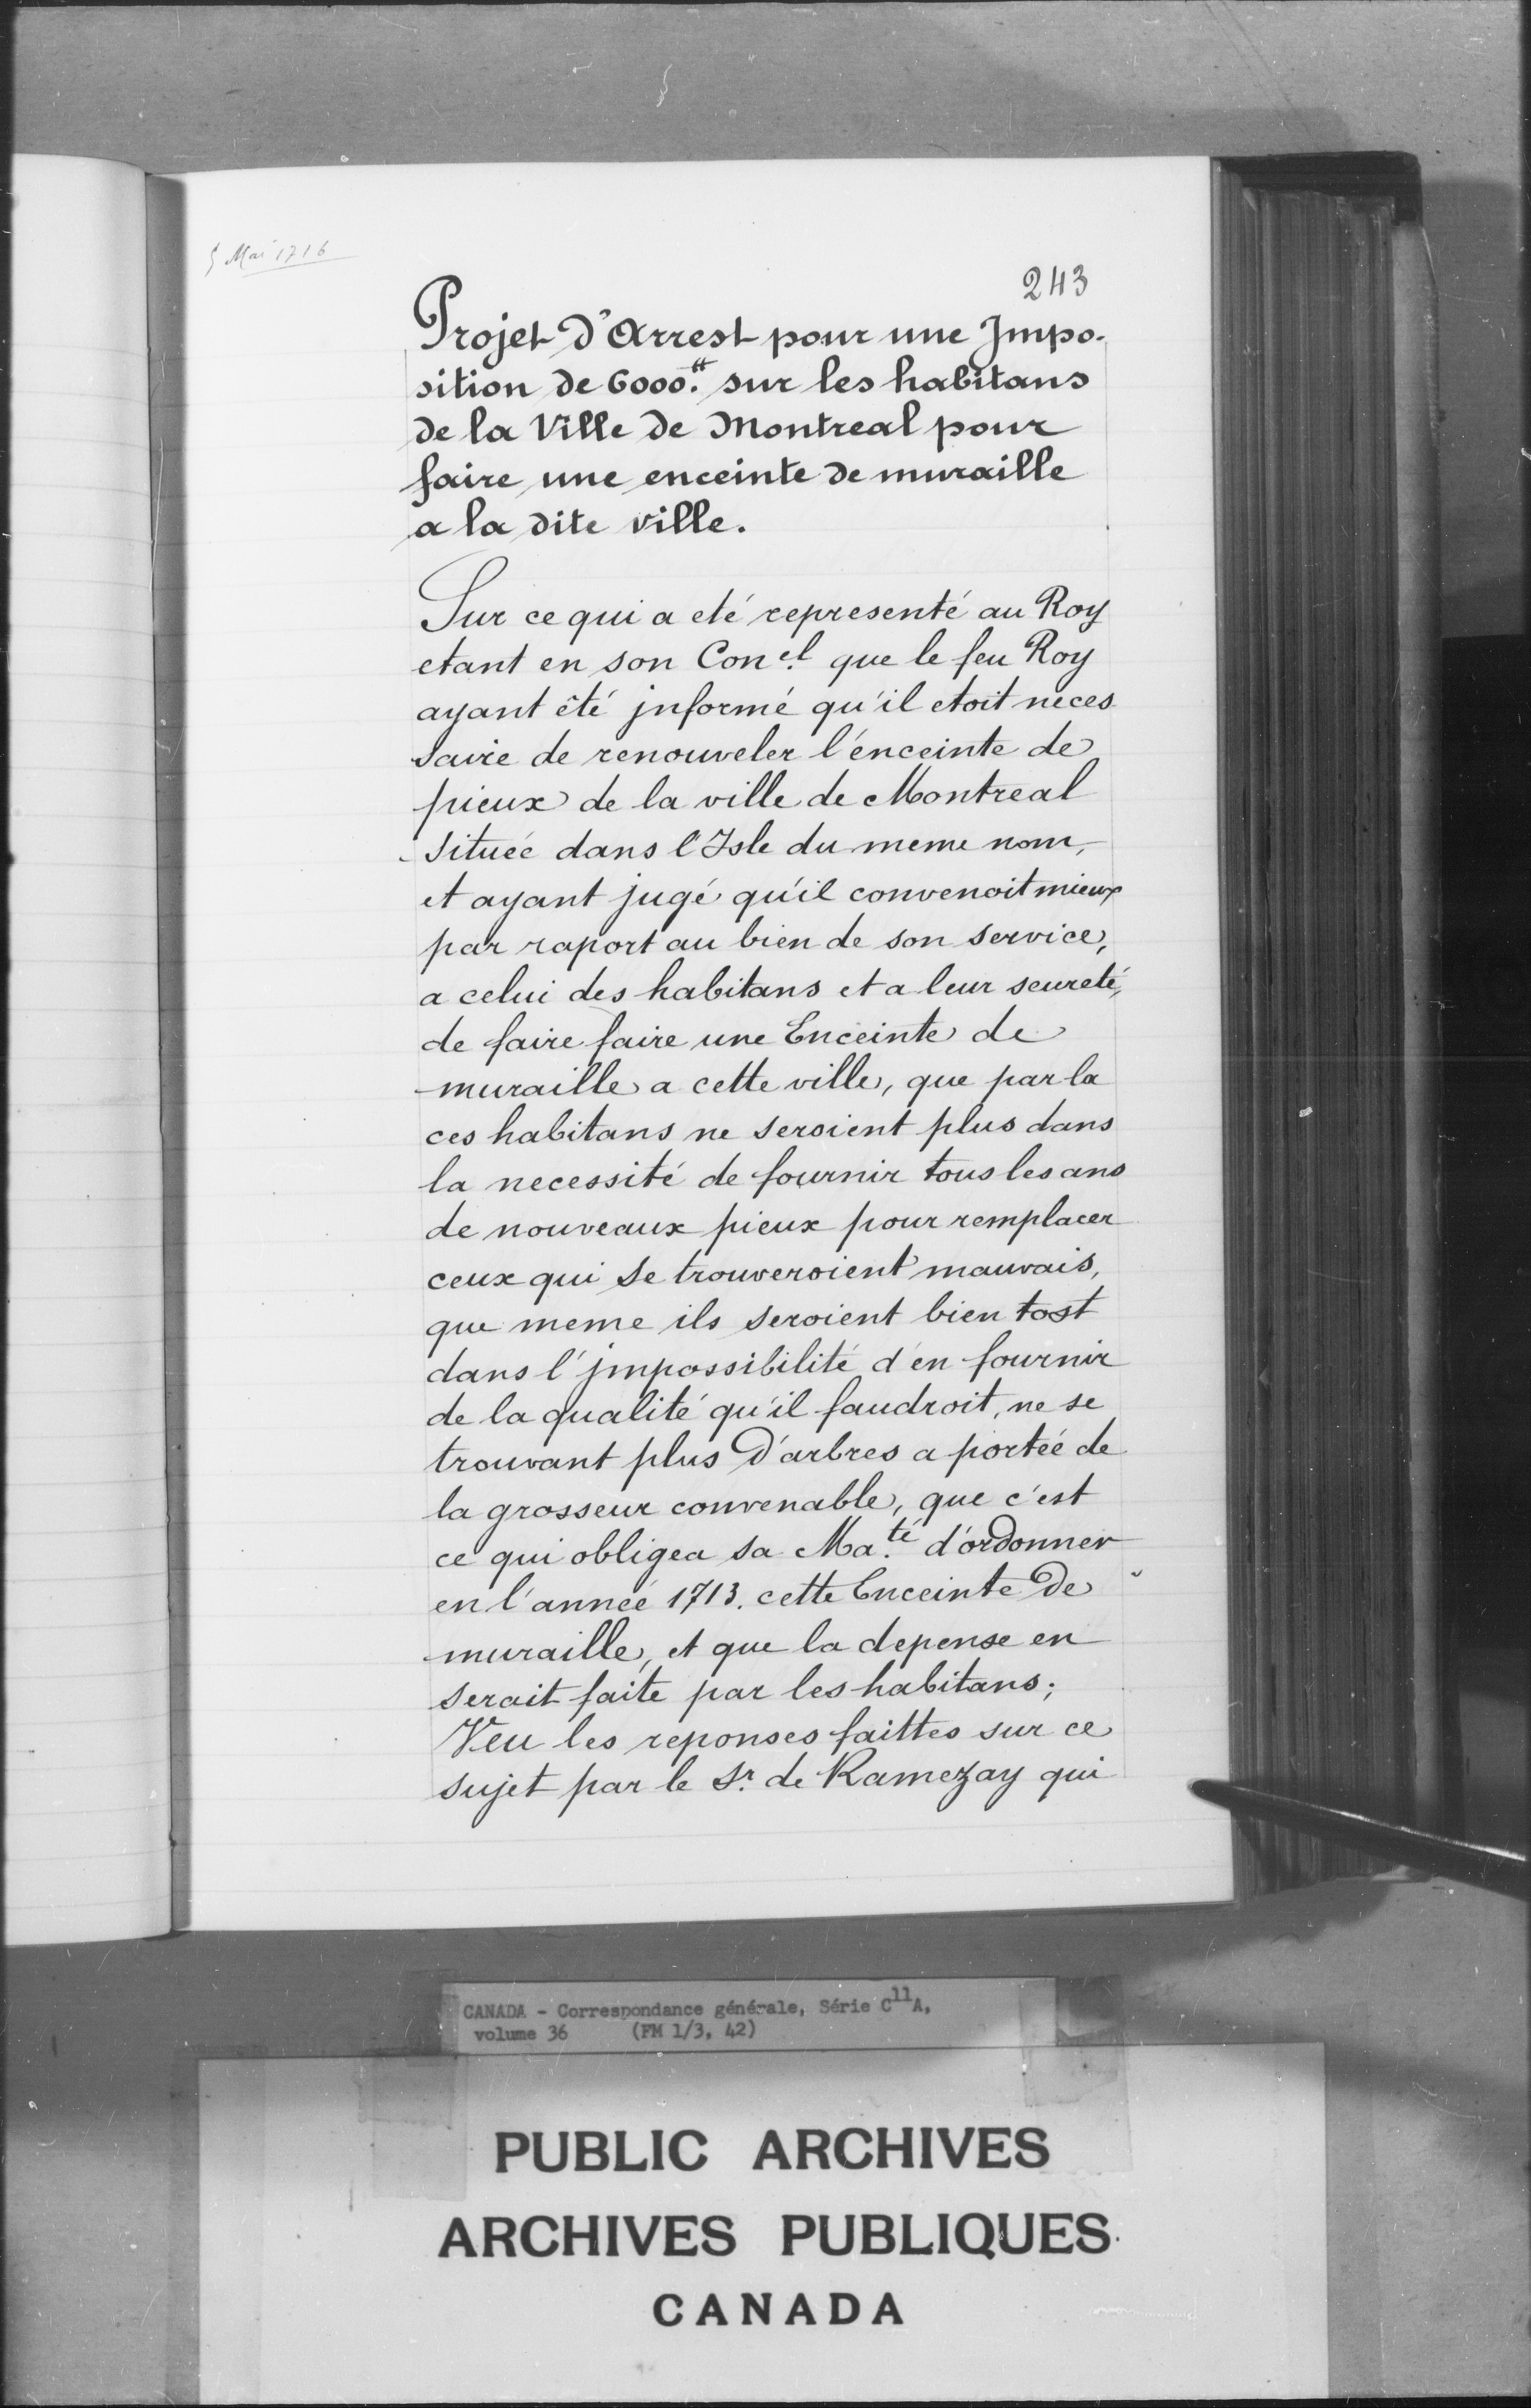 5 Mai 1716
243
Projet d'Arrest pour une Impo-
sition de 6000.tt sur les habitans
de la Ville de Montreal pour
faire une enceinte de muraille
a la dite ville.
Sur ce qui a eté representé au Roy
etant en son Con.el que le feu Roy
ayant êté jnformé qu'il etoit neces
saire de renouveler l'énceinte de
pieux de la ville de Montreal
situéé dans l'Isle du meme nom,
et ayant jugé qu'il convenoit mieux
par raport au bien de son service,
a celui des habitans et a leur seureté,
de faire faire une Enceinte de
muraille a cette ville, que par la
ces habitans ne seroient plus dans
la necessité de fournir tous les ans
de nouveaux pieux pour remplacer
ceux qui se trouveroient mauvais,
que meme ils seroient bien tost
dans l'jmpossibilité d'en fournir
de la qualité qu'il faudroit, ne se
trouvant plus D'arbres a portéé de
la grosseur convenable, que c'est
ce qui obligea sa Ma.té d'ordonner
en l'annéé 1713. cette Enceinte De
muraille, et que la depense en
serait faite par les habitans;
Veu les reponses faittes sur ce
sujet par le Sr. de Ramezay qui
CANADA - Correspondance générale, Série C11A,
volume 36 (FM 1/3, 42)
PUBLIC ARCHIVES
ARCHIVES PUBLIQUES
CANADA